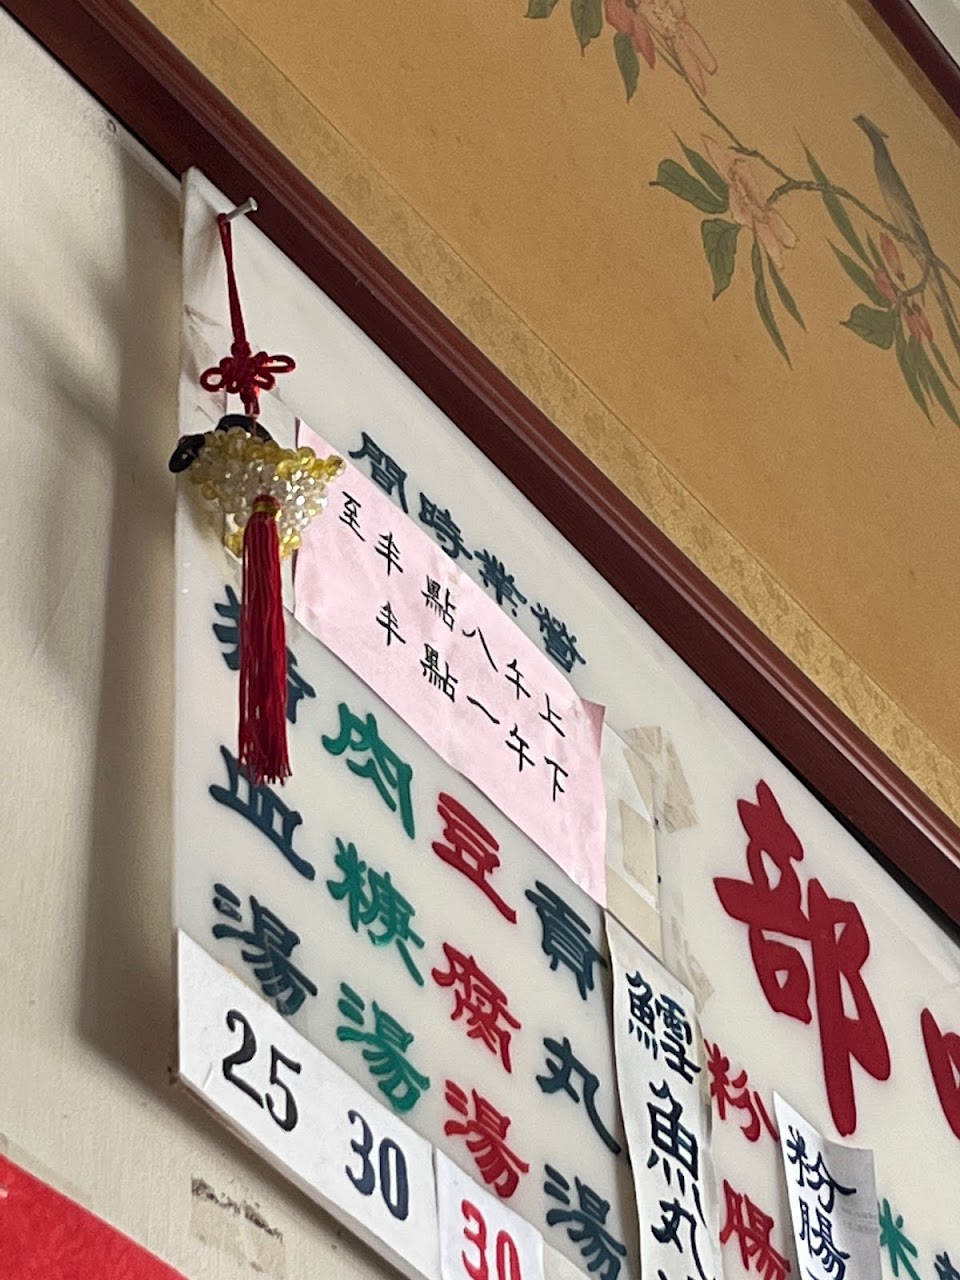 營業時間
上午八點半至
下午一點半
部
米
粉腸
粉腸
鱈魚丸
貢丸湯
豆腐湯
30
肉 湯
30
豬血湯
25